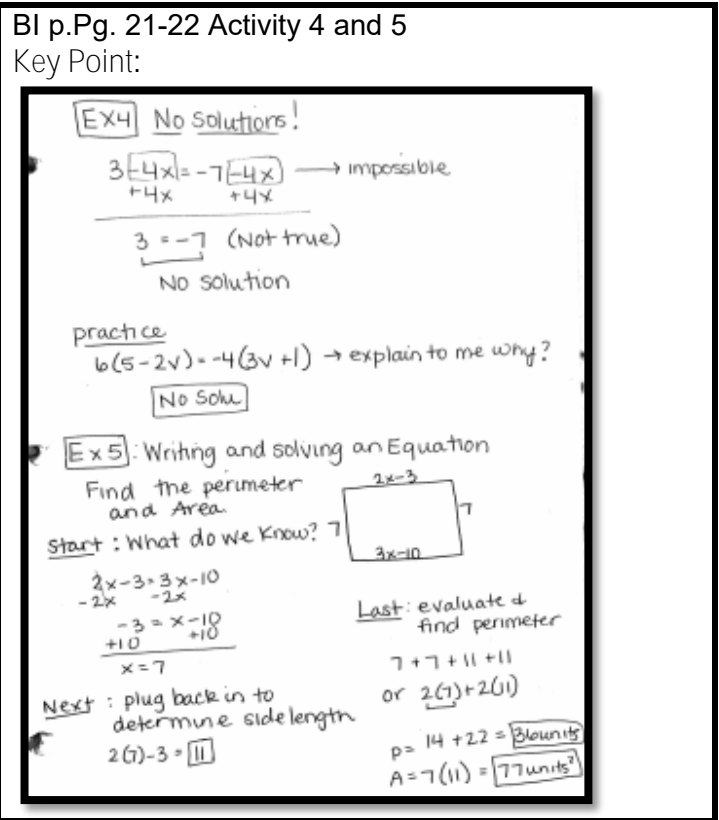 BI p.Pg. 21-22 Activity 4 and 5
Key Point:
EX4 No Solutions!
3-4x = -7-4x → impossible
+4x +4x
3 = -7 (Not true)
No solution
practice
6(5-2v) = -4(3v+1) → explain to me why?
No Solu
Ex 5: Writing and solving an Equation
Find the perimeter
and Area.
2x-3
7
7
3x-10
Start: What do we know?
2x-3=3x-10
-2x -2x
-3 = x-10
+10 +10
x=7
Next: plug back in to
determine side length
2(7)-3 = 11
Last: evaluate &
find perimeter
7+7+11+11
or 2(7)+2(11)
P= 14+22 = 36units
A=7(11) = 77units²